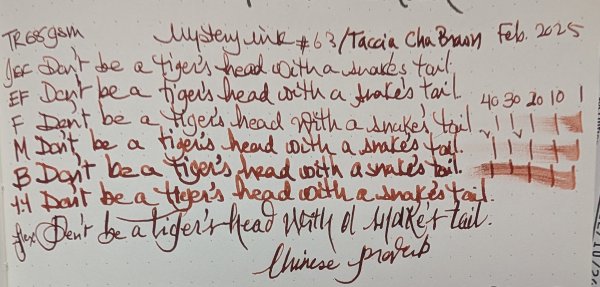 TR68gsm Mystery ink #63/Taccia Cha Brown Feb. 2025
JEF Don't be a tiger's head with a snake's tail.
EF Don't be a tiger's head with a snake's tail.
40 30 20 10 1
F Don't be a tiger's head with a snake's tail
M Don't be a tiger's head with a snake's tail.
B Don't be a tiger's head with a snake's tail.
1.1 Don't be a tiger's head with a snake's tail.
flex Don't be a tiger's head with a snake's tail.
Chinese proverb